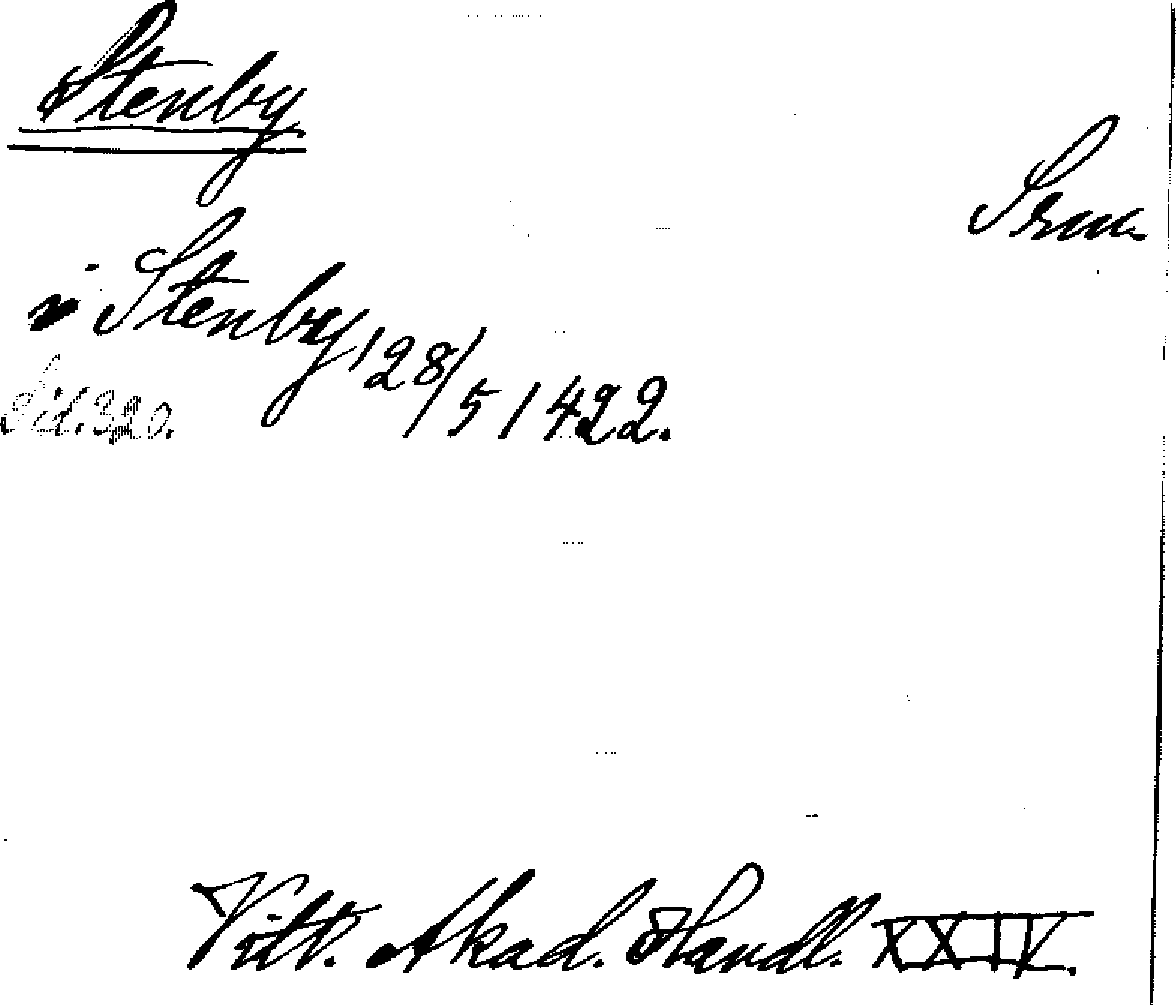 Stenby
Srm.
i Stenby, 28/5 1422.
Sid. 320.
Vitt. Akad. Handl. XXIV.